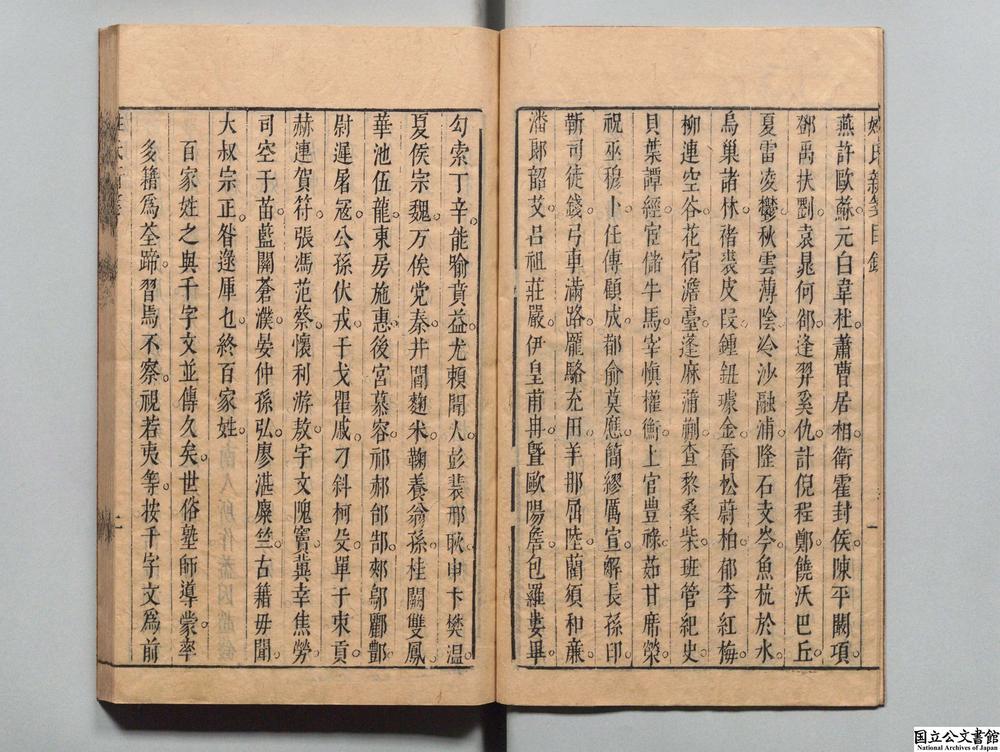 姓氏新箋目錄
燕許歐蘇。元白韋杜。蕭曹居相。衛霍封侯。陳平闕項。
鄧禹扶劉。袁晁何郤。逢羿奚仇。計倪程鄭。饒沃巴丘。
夏雷凌鬱。秋雲薄陰。冷沙融浦。隆石支岑。魚杭於水。
烏巢諸林。褚裴皮段。鍾鈕璩金。喬松蔚柏。郁李紅梅。
柳連空谷。花宿澹臺。蓬麻蒲蒯。查黎桑柴。班管紀史。
貝葉譚經。宦儲牛馬。宰愼權衡。上官豐祿。茹甘席榮。
祝巫穆卜。任傳顧成。都俞莫應。簡繆厲宣。解長孫印。
靳司徒錢。弓車滿路。龐駱充田。羊那屈陸。藺須和亷。
潘郎韶艾。呂祖莊嚴。伊皇甫冉。曁歐陽詹。包羅婁畢。
勾索丁辛。能喻賁益。尤賴聞人。彭裴邢耿。申卞樊溫。
夏侯宗魏。万俟党秦。井閻麴米。鞠養翁孫。桂闕雙鳳。
華池伍龍。東房施惠。後宮慕容。祁郝郃郜。郟鄔酈酆。
尉遲屠冦。公孫伏戎。干戈瞿戚。刁斜柯殳。單于束貢。
赫連賀符。張馮范蔡。懷利游敖。宇文隗竇。冀幸焦勞。
司空于苗。藍關蒼濮。晏仲孫弘。廖湛麋竺。古籍毋聞。
大叔宗正。昝逯厙乜。終百家姓。
百家姓之與千字文並傳久矣。世俗塾師導蒙。率
多籍爲筌蹄。習焉不察。視若夷等。按千字文爲前
一